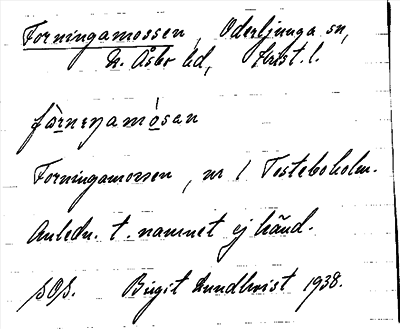 Forningamossen, Oderljunga sn,
N. Åsbo hd, Krist. l.
fòrneŋamósan
Forningamossen, nr 1 Testeboholm.
Anledn. t. namnet ej känd.
SOS. Birgit Lundkvist 1938.